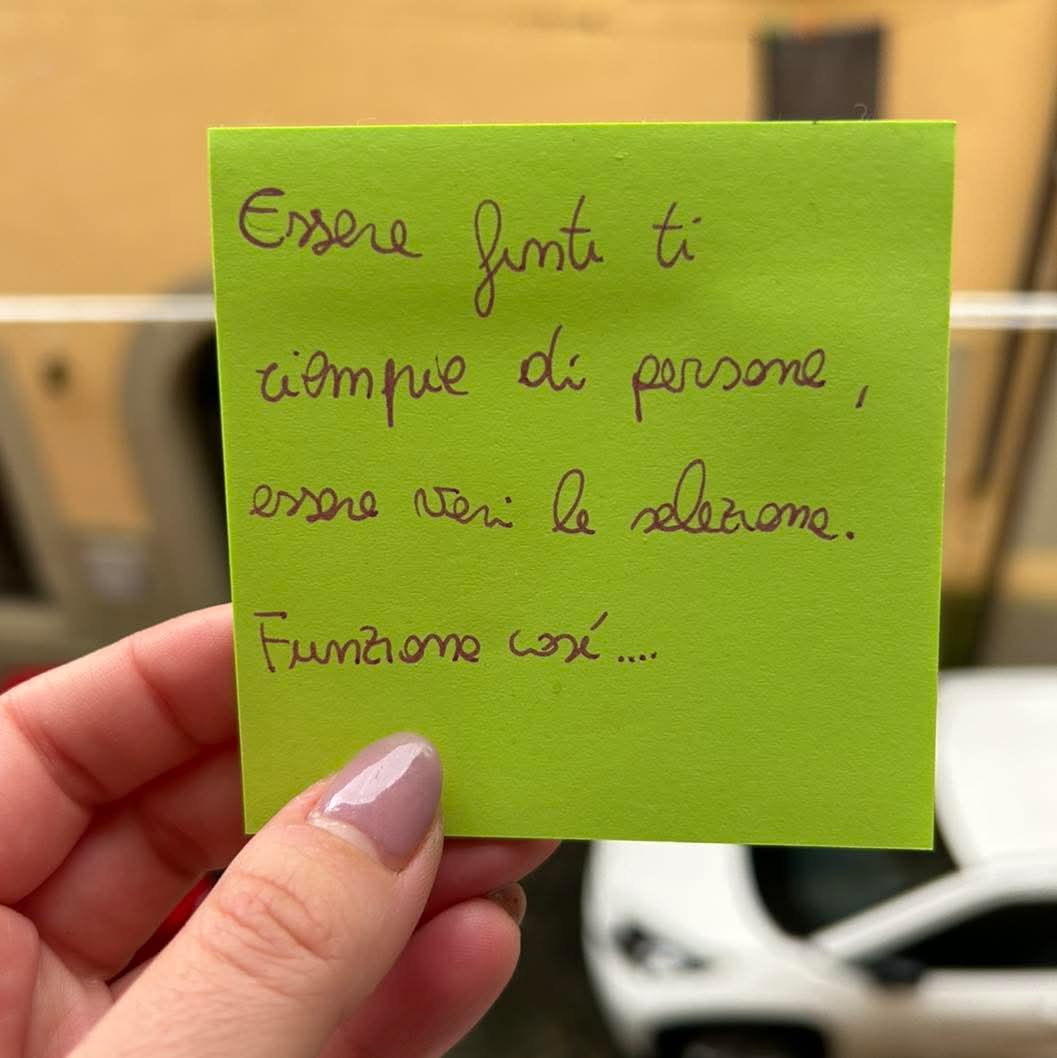 Essere finti ti
riempie di persone,
essere veri le seleziona.
Funziona così....